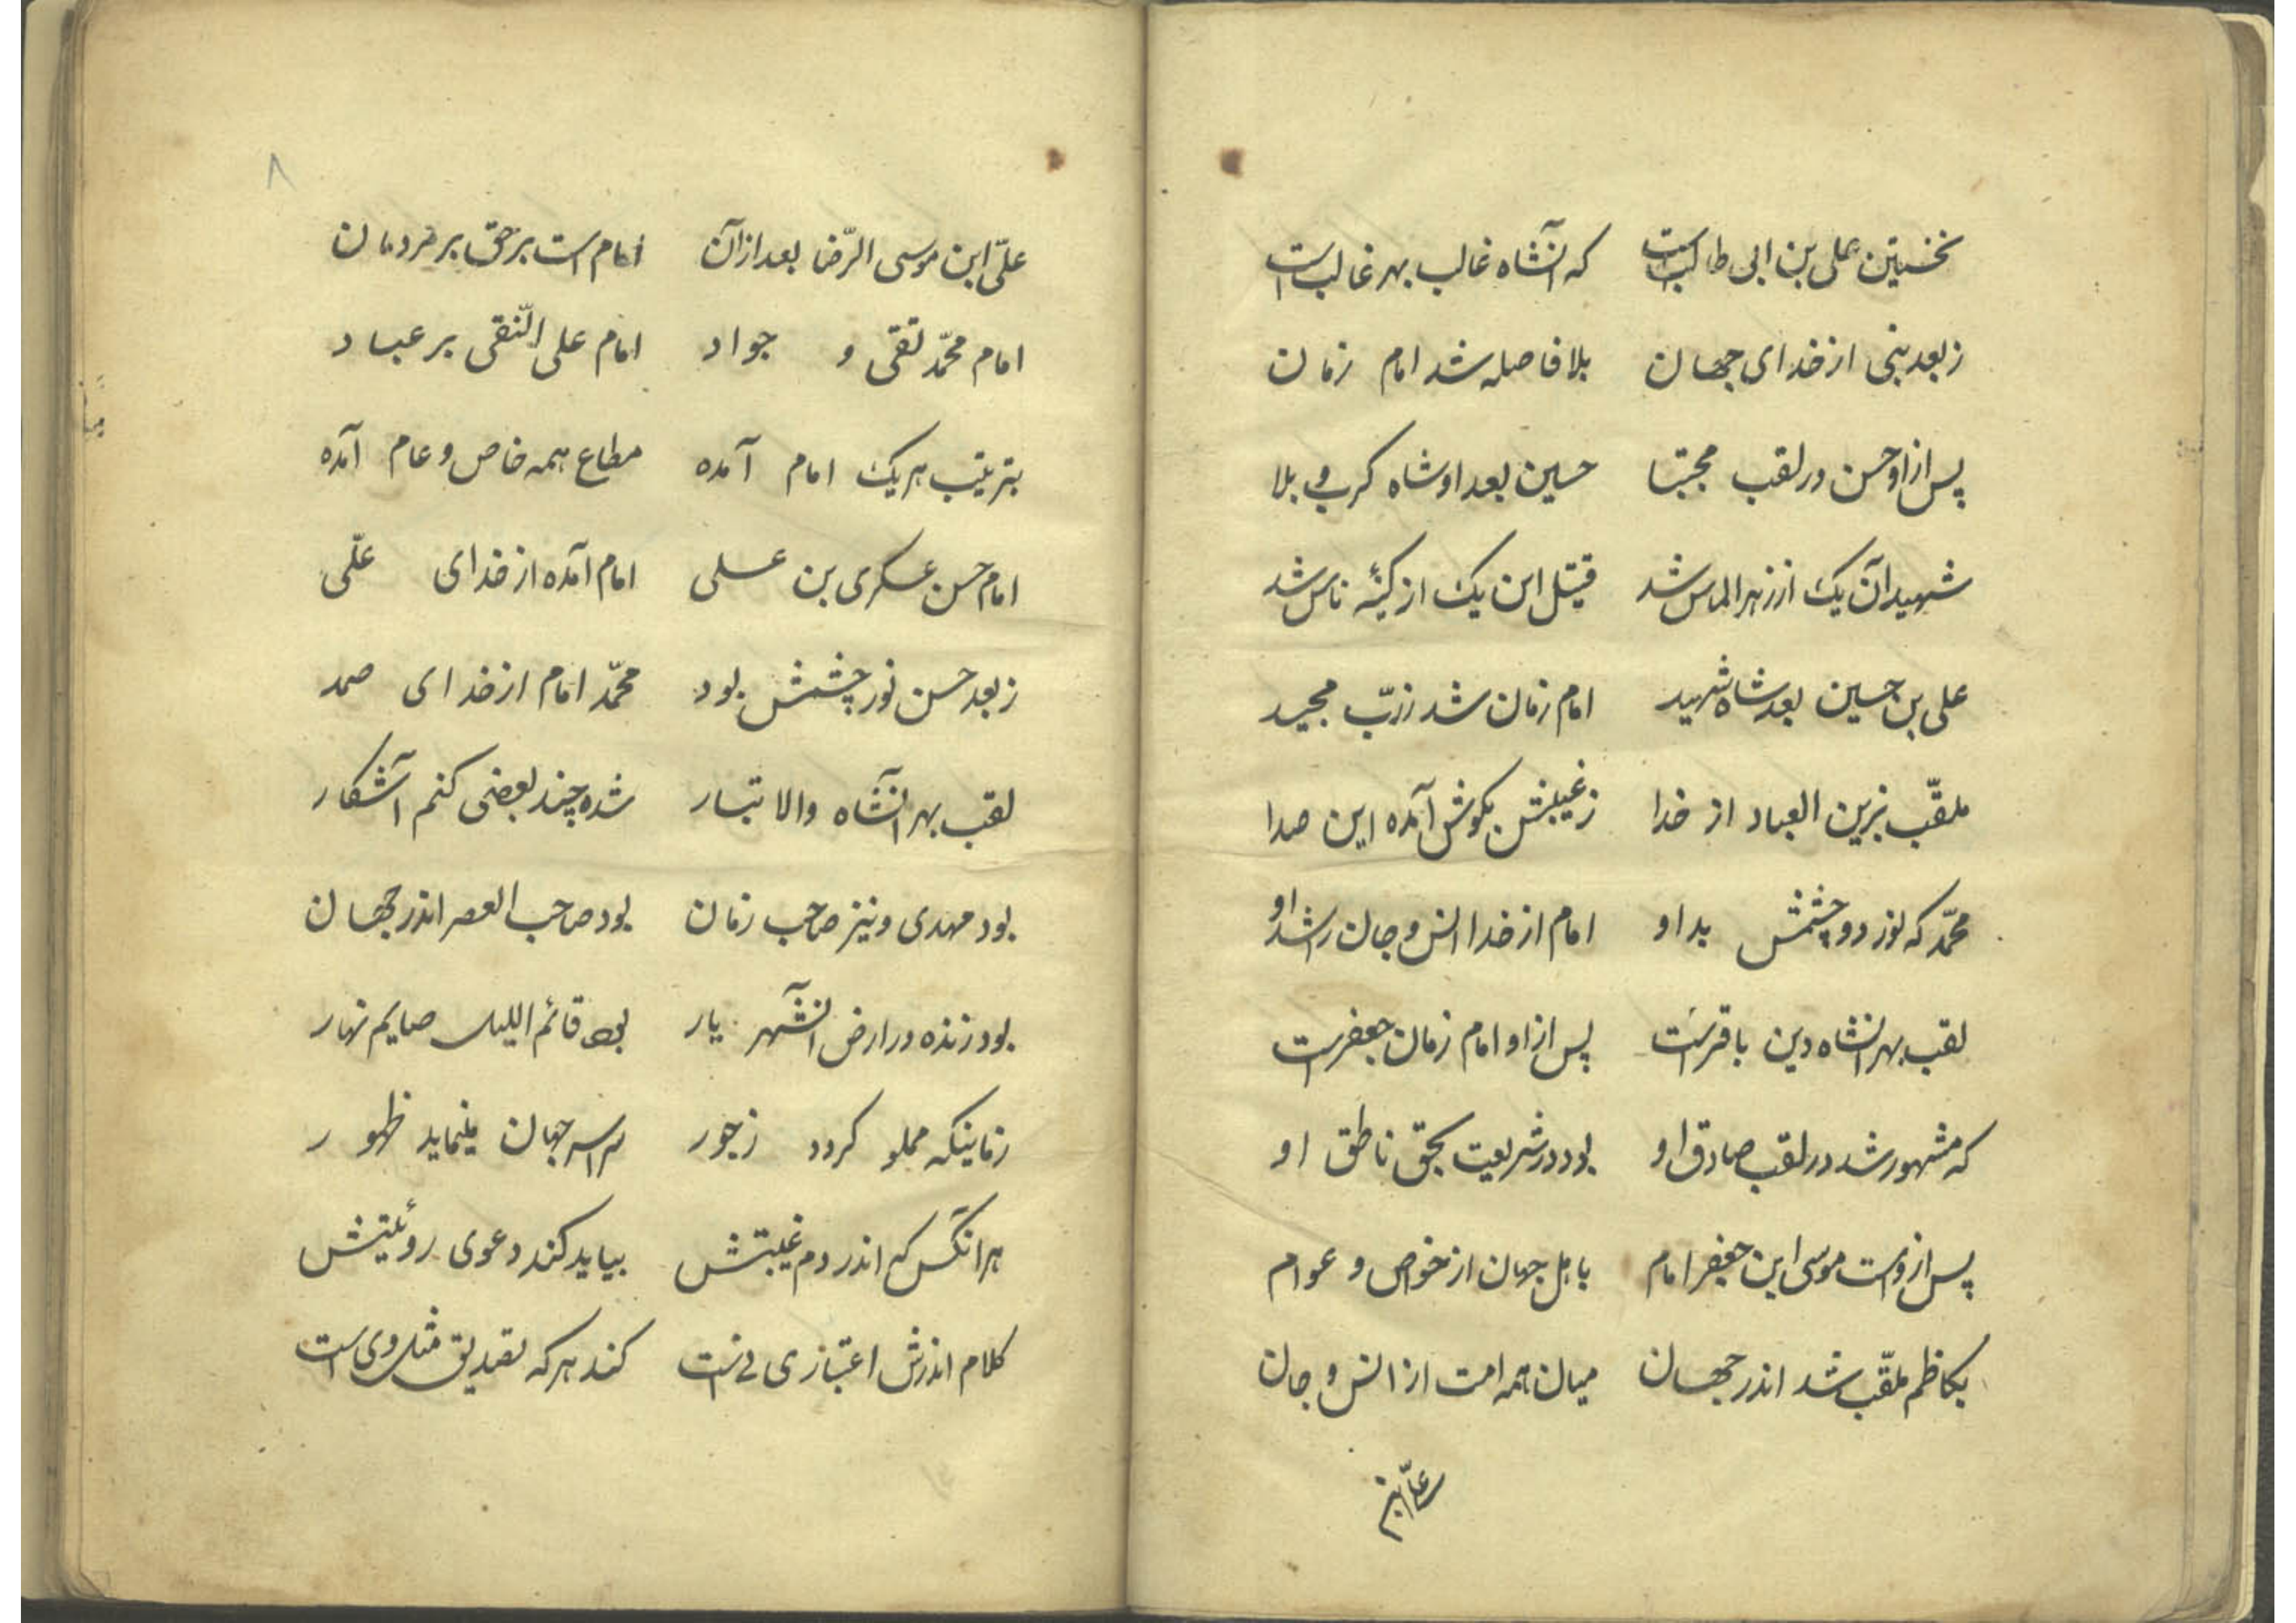 نخستین علی بن ابی طالبست که آنشاه غالب بهر غالب است
ز بعد نبی از خدای جهان بلا فاصله شد امام زمان
پس از او حسن در لقب مجتبا حسین بعد او شاه کرب و بلا
شهید آن یک از زهر الماس شد قتیل این یک از کینهٔ ناس شد
علی بن حسین بعد شاه شهید امام زمان شد ز ربّ مجید
ملقّب بزین العباد از خدا ز غیبش بگوش آمده این صدا
محمّد که نور دو چشمش بد او امام از خدا انس و جان را شد او
لقب بهر انشاه دین باقر است پس از او امام زمان جعفر است
که مشهور شد در لقب صادق او بود در شریعت بحق ناطق او
پس از وست موسی ابن جعفر امام باهل جهان از خواص و عوام
بکاظم ملقّب شد اندر جهان میان همه امت از انس و جان
علّی ابن
۸
علّی ابن موسی الرّضا بعد از آن امام است بر حق بر مردمان
امام محمّد تقی و جواد امام علی النّقی بر عباد
بترتیب هر یک امام آمده مطاع همه خاص و عام آمده
امام حسن عسکری بن علی امام آمده از خدای علّی
ز بعد حسن نور چشمش بود محمّد امام از خدای صمد
لقب بهر آنشاه والا تبار شده چند بعضی کنم آشکار
بود مهدی و نیز صاحب زمان بود صاحب العصر اندر جهان
بود زنده در ارض آنشهر یار بود قائم اللیل صایم نهار
زمانیکه مملو کردد ز جور سراسر جهان مینماید ظهور
هر آنکس که اندر دم غیبتش بیاید کند دعوی روئیتش
کلام اندرش اعتباری نی است کند هر که تصدیق مثل وی است